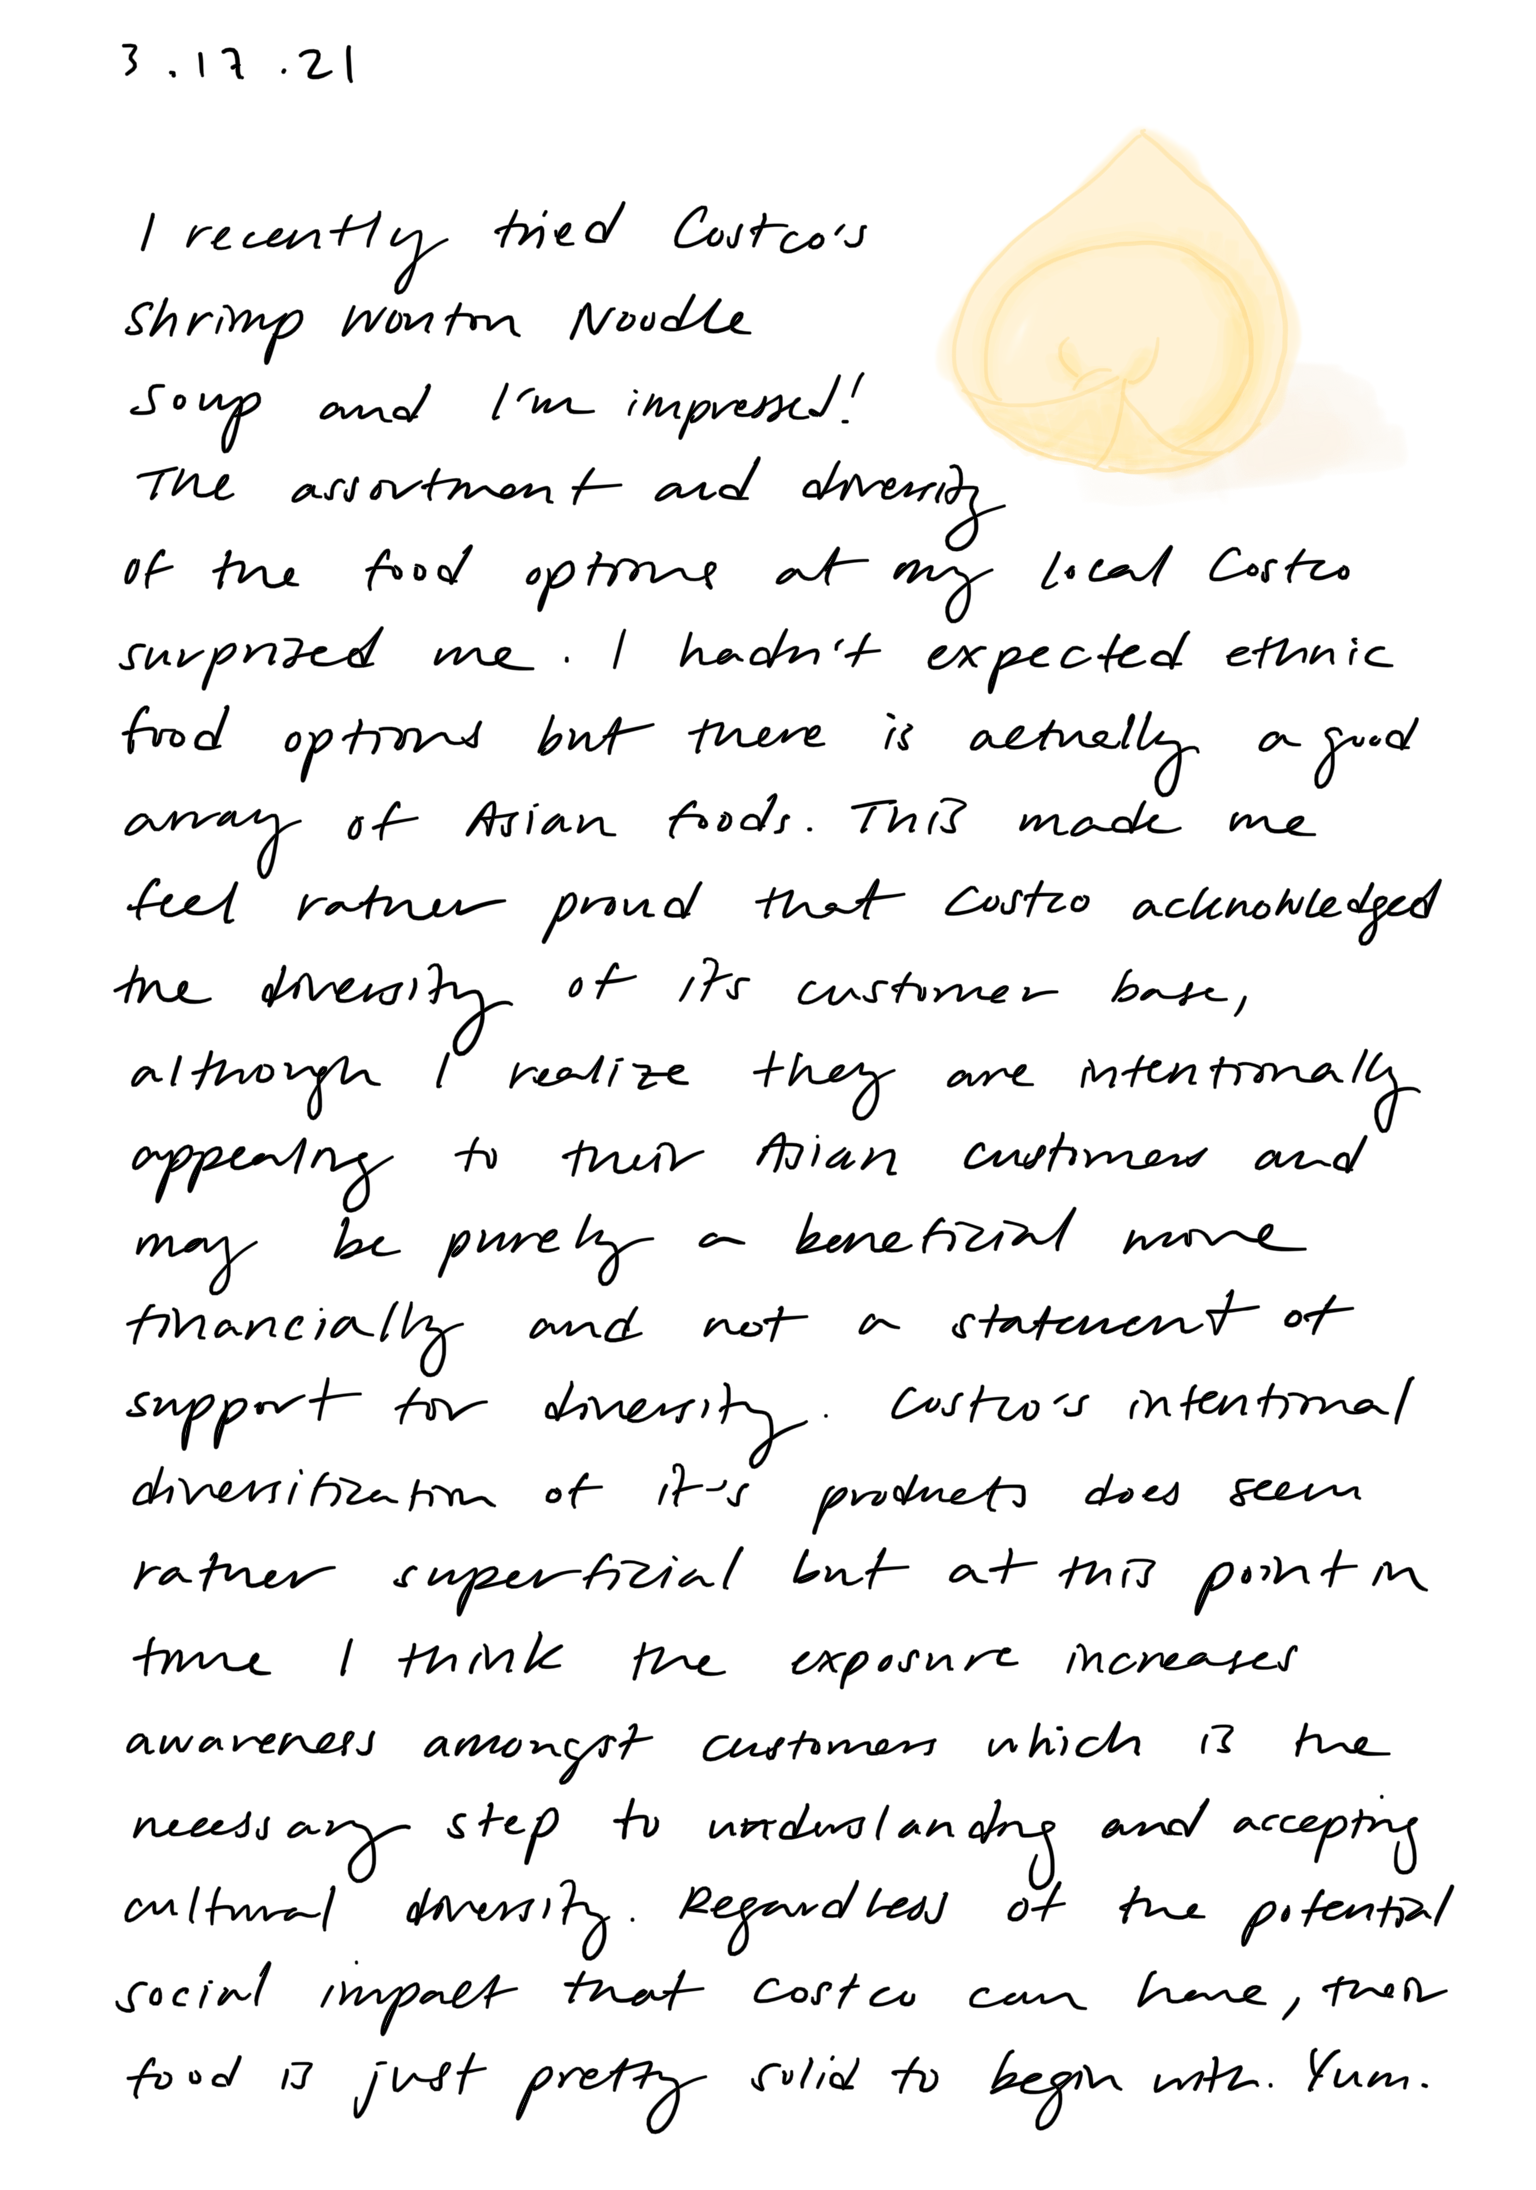 3.17.21
I recently tried Costco's
Shrimp Wonton Noodle
Soup and I'm impressed!
The assortment and diversity
of the food options at my local Costco
surprized me. I hadn't expected ethnic
food options but there is actually a good
array of Asian foods. This made me
feel rather proud that Costco acknowledged
the diversity of it's customer base,
although I realize they are intentionally
appealing to their Asian customers and
may be purely a beneficial move
financially and not a statement of
support for diversity. Costco's intentional
diversification of it's products does seem
rather superficial but at this point in
time I think the exposure increases
awareness amongst customers which is the
necessary step to understanding and accepting
cultural diversity. Regardless of the potential
social impact that Costco can have, their
food is just pretty solid to begin with. Yum.